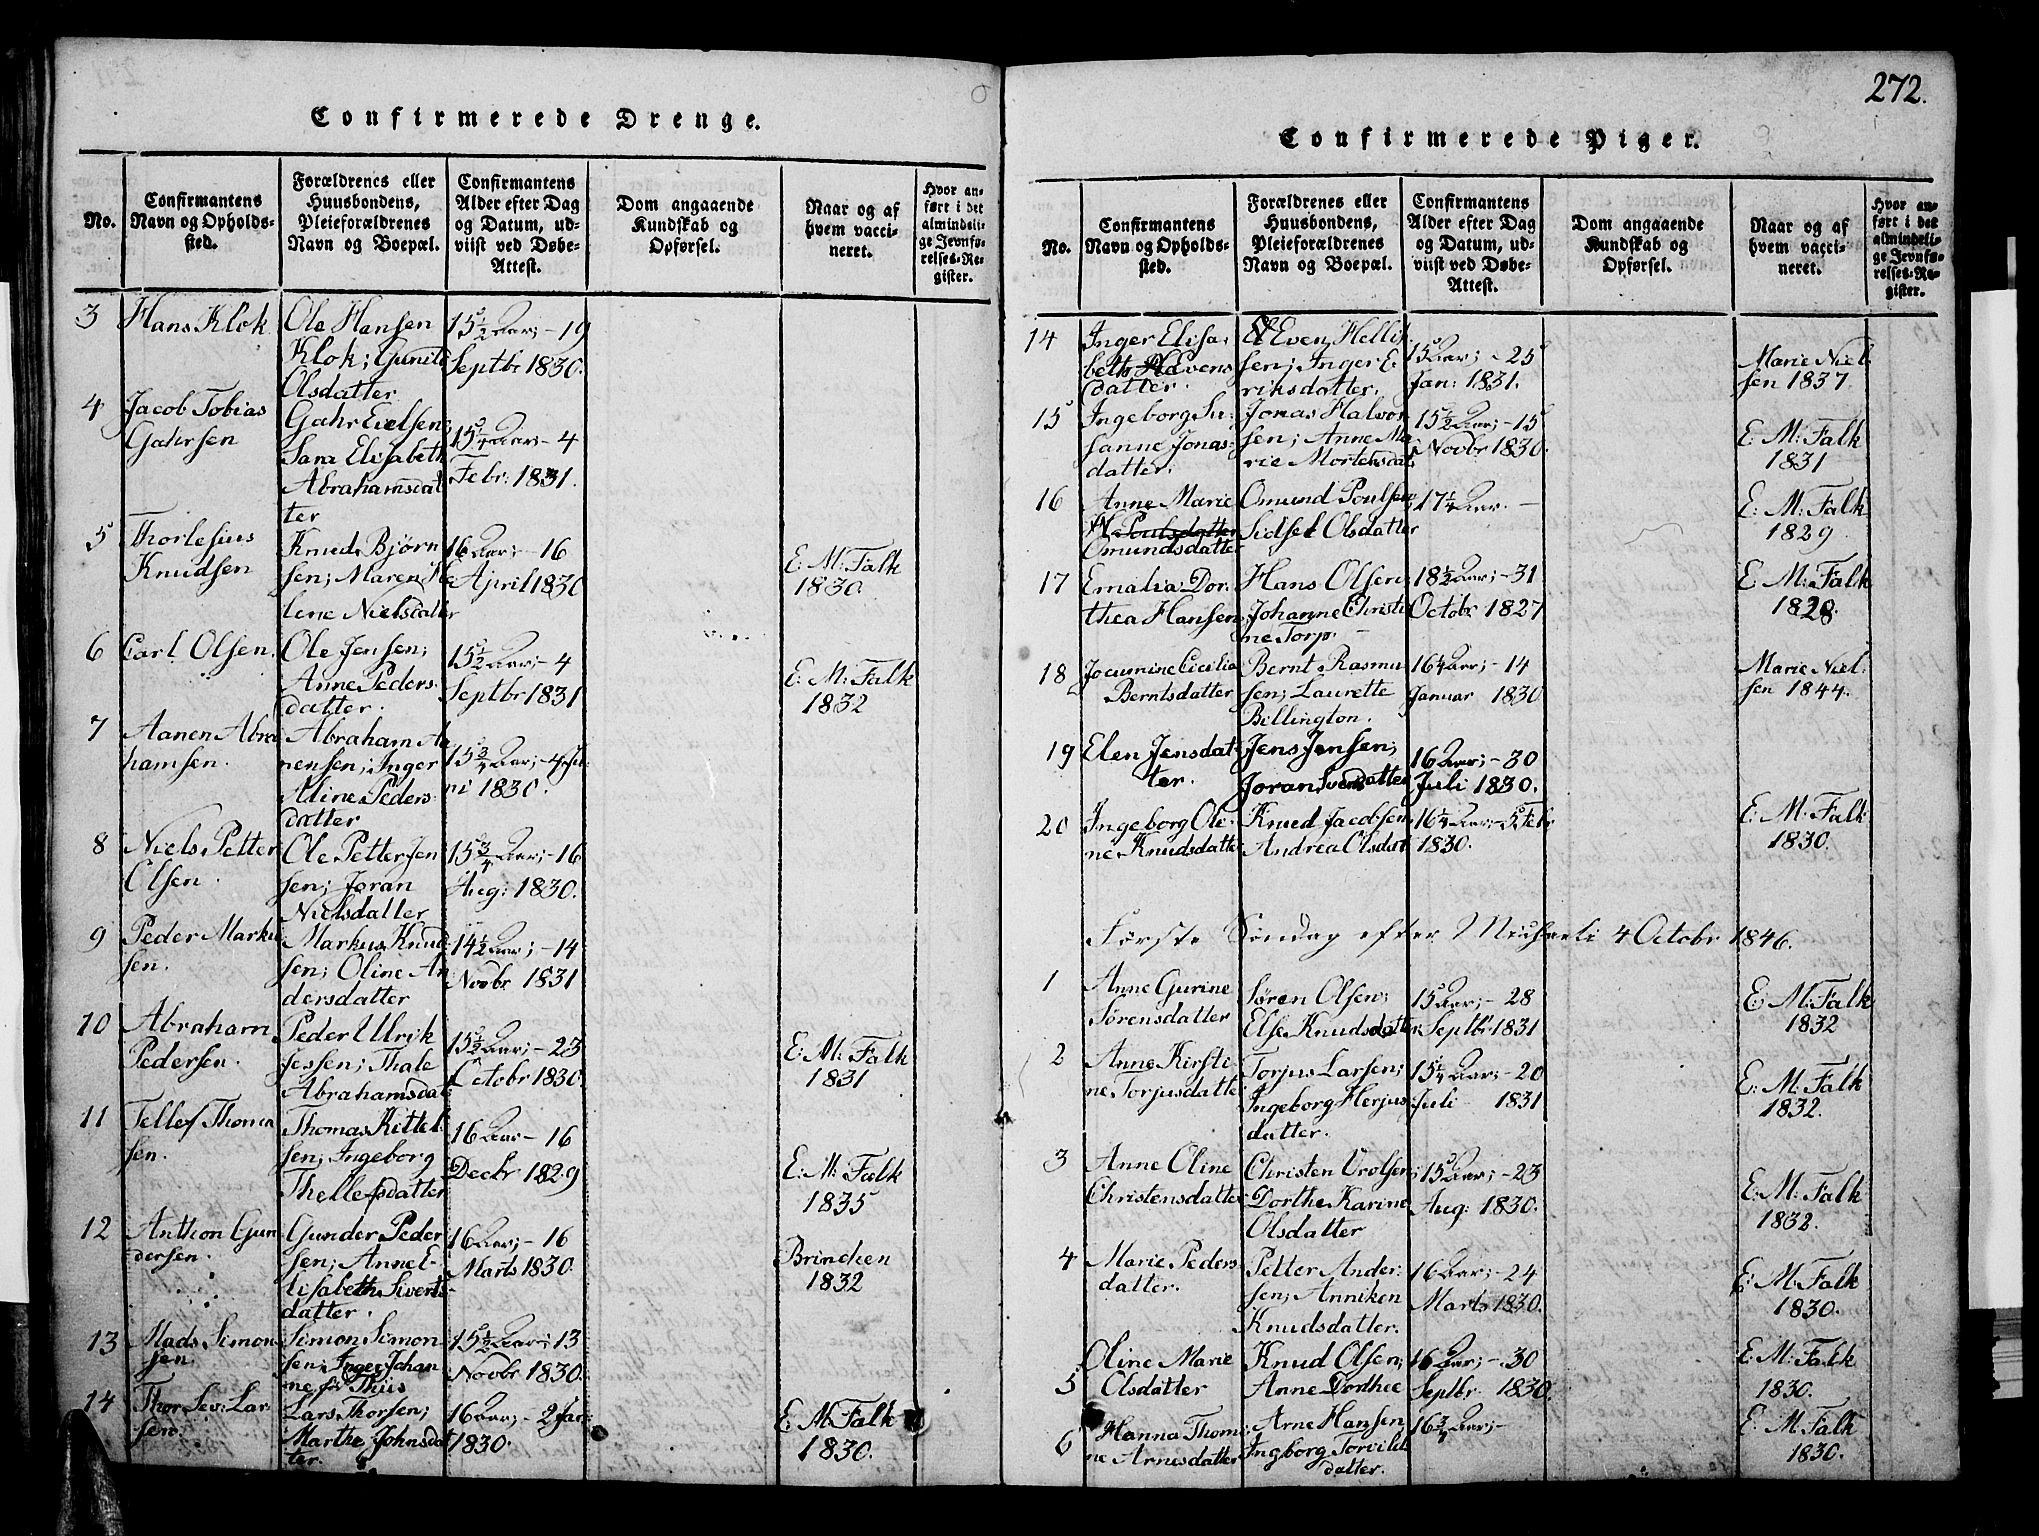 272.
Confirmerede Drenge.
No.
Confirmantens
Navn og Opholds-
sted.
Forældrenes eller
Huusbondens,
Pleieforældrenes
Navn og Boepæl.
Confirmantens
Alder efter Dag
og Datum, ud-
viist ved Døbe-
Attest.
Dom angaaende
Kundskab og
Opførsel.
Naar og af
hvem vacci-
neret.
Hvor an-
ført i det
almindeli-
ge Jevnfø-
relses-Re-
gister.
3
Hans Klok
Ole Hansen
Klok; Gunild
Olsdatter
15½ Aar; - 19
Septbr 1830.
4
Jacob Tobias
Gahrsen
Gahr Eielsen;
Sara Elisabeth
Abrahamsdat
ter
15¼ Aar; - 4
Febr: 1831.
5
Thorlesius
Knudsen
Knud Bjørn
sen; Maren He
lene Nielsdatter
16 Aar; - 16
April 1830
E: M: Falk
1830.
6
Carl Olsen.
Ole Jensen;
Anne Peders-
datter.
15½ Aar; - 4
Septbr 1831
E: M: Falk
1832
7
Aanen Abra
hamsen.
Abraham Aa
nensen; Inger
Aline Peders-
datter
15¾ Aar; - 4 Ju-
ni 1830.
8
Niels Petter
Olsen.
Ole Petter Jen
sen; Joran
Nielsdatter
15¾ Aar; - 16
Aug: 1830.
9
Peder Marku
sen.
Markus Knud
sen; Oline An
dersdatter
14½ Aar; - 14
Novbr 1831
10
Abraham
Pedersen.
Peder Ulrik
Jessen; Thale
Abrahamsdat
15½ Aar; - 23
Octobr 1830.
E: M: Falk
1831
11
Tellef Thoma
sen.
Thomas Kittel
sen; Ingeborg
Thellefsdatter
16 Aar - 16
Decbr 1829
E: M: Falk
1835
12
Anthon Gun
dersen.
Gunder Peder
sen; Anne E-
lisabeth Sivert
datter.
16 Aar; - 16
Marts 1830.
Brincken
1832
13
Mads Simon
sen.
Simon Simon-
sen; Inger Johan
ne Thiis
15½ Aar; 13
Novbr 1830.
14
Thor Sev: Lar-
sen.
Lars Thorsen;
Marthe Johnsdat
ter.
16 Aar; - 2 Jan:
1830.
E: M: Falk
1830.
Confirmerede Piger.
No.
Confirmantens
Navn og Opholds-
sted.
Forældrenes eller
Huusbondens,
Pleieforældrenes
Navn og Boepæl.
Confirmantens
Alder efter Dag
og Datum, ud-
viist ved Døbe-
Attest.
Dom angaaende
Kundskab og
Opførsel.
Naar og af
hvem vacci-
neret.
Hvor an-
ført i det
almindeli-
ge Jevnfø-
relses-Re-
gister.
14
Inger Elisa-
beth Evens
datter.
Even Hellik
sen; Inger E-
riksdatter.
15 Aar; - 25
Jan: 1831.
Marie Niel
sen 1837.
15
Ingeborg Su-
sanne Jonas-
datter.
Jonas Halvor
sen; Anne Ma
rie Mortensdat
15½ Aar; - 15
Novbr 1830.
E: M: Falk
1831
16
Anne Marie
Poulsdatter
Omundsdatter
Omund Poulsen;
Sidsel Olsdatter
17¼ Aar. -
E: M: Falk
1829
17
Emalia Dor-
thea Hansen
Hans Olsen;
Johanne Christi
ne Torp. -
18½ Aar; - 31
Octobr 1827
E: M: Falk
1828.
18
Jocumine Cicilia
Berntsdatter
Bernt Rasmu
sen; Laurette
Billington.
16¼ Aar; - 14
Januar 1830
Marie Niel-
sen 1844.
19
Elen Jensdat
ter.
Jens Jensen;
Joran Svensdatter
16 Aar; - 30
Juli 1830.
20
Ingeborg Ole-
ne Knudsdatter
Knud Jacobsen;
Andrea Olsdat
16¼ Aar; - 5 Febr
1830.
E: M: Falk
1830.
Første Søndag efter Michaeli 4 Octobr 1846.
1
Anne Gurine
Sørensdatter
Søren Olsen;
Else Knudsdatter
15 Aar; - 28
Septbr 1831
E: M: Falk
1832
2
Anne Kirsti
ne Torjusdatter
Torjus Larsen;
Ingeborg Herjus-
datter.
15¼ Aar; - 20
Juli 1831
E: M: Falk
1832.
3
Anne Oline
Christensdatter
Christen Vrolsen;
Dorthe Karine
Olsdatter
15 Aar; - 23
Aug: 1830.
E: M: Falk
1832.
4
Marie Peders
datter.
Petter Ander-
sen; Anniken
Knudsdatter.
16 Aar; - 24
Marts 1830.
E: M: Falk
1830.
5
Oline Marie
Olsdatter
Knud Olsen;
Anne Dorthee
16 Aar; - 30
Septbr 1830.
E: M: Falk
1830.
6
Hanna Thom
ne Arnesdatter
Arne Hansen
Ingborg Torvild
datter.
16¾ Aar; -
E: M: Falk
1830.